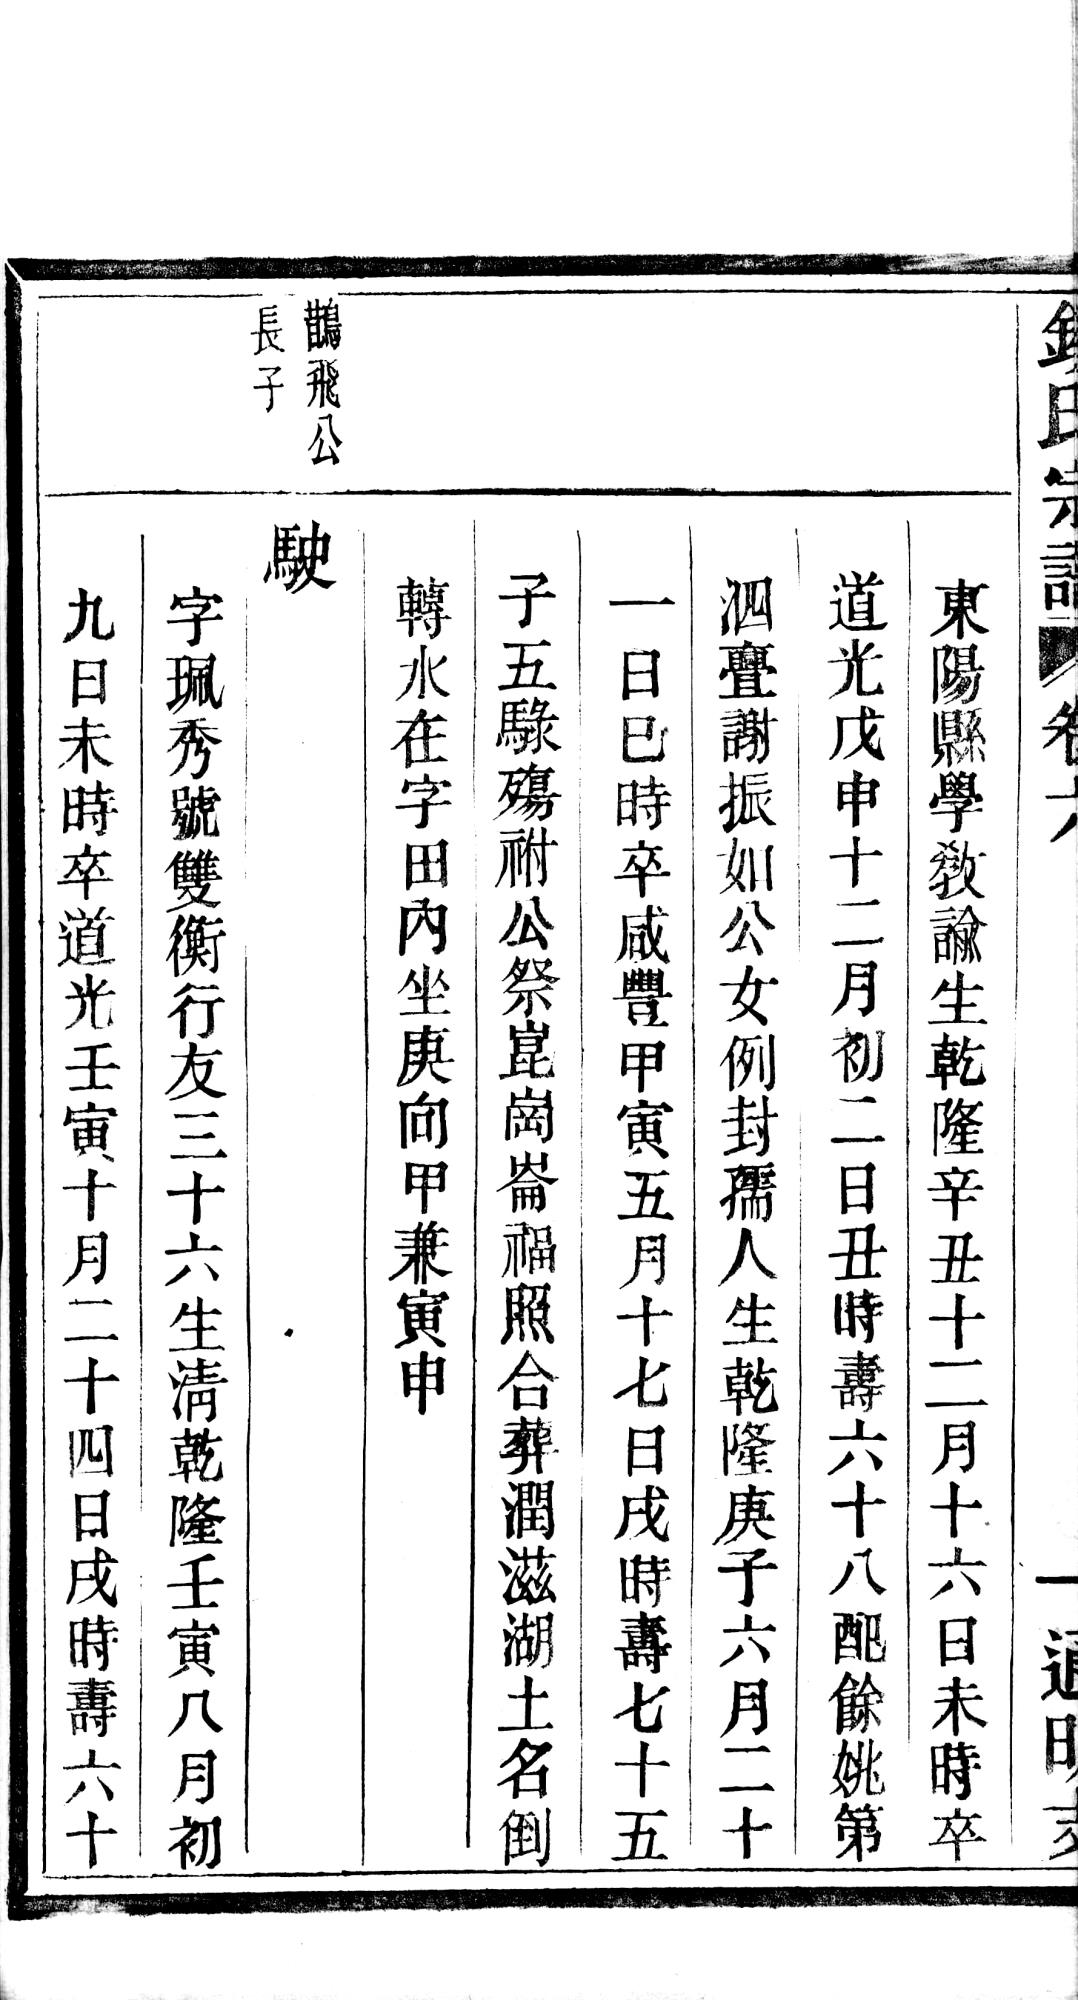 氏宗譜 卷六 一
東陽縣學敎諭生乾隆辛丑十二月十六日未時卒
道光戊申十二月初二日丑時壽六十八配餘姚第
泗疊謝振如公女例封孺人生乾隆庚子六月二十
一日巳時卒咸豐甲寅五月十七日戌時壽七十五
子五騄殤祔公祭崑崗崙福照合葬潤滋湖土名倒
轉水在字田內坐庚向甲兼寅申
鵲飛公
長子
駛
字珮秀號雙衡行友三十六生淸乾隆壬寅八月初
九日未時卒道光壬寅十月二十四日戌時壽六十